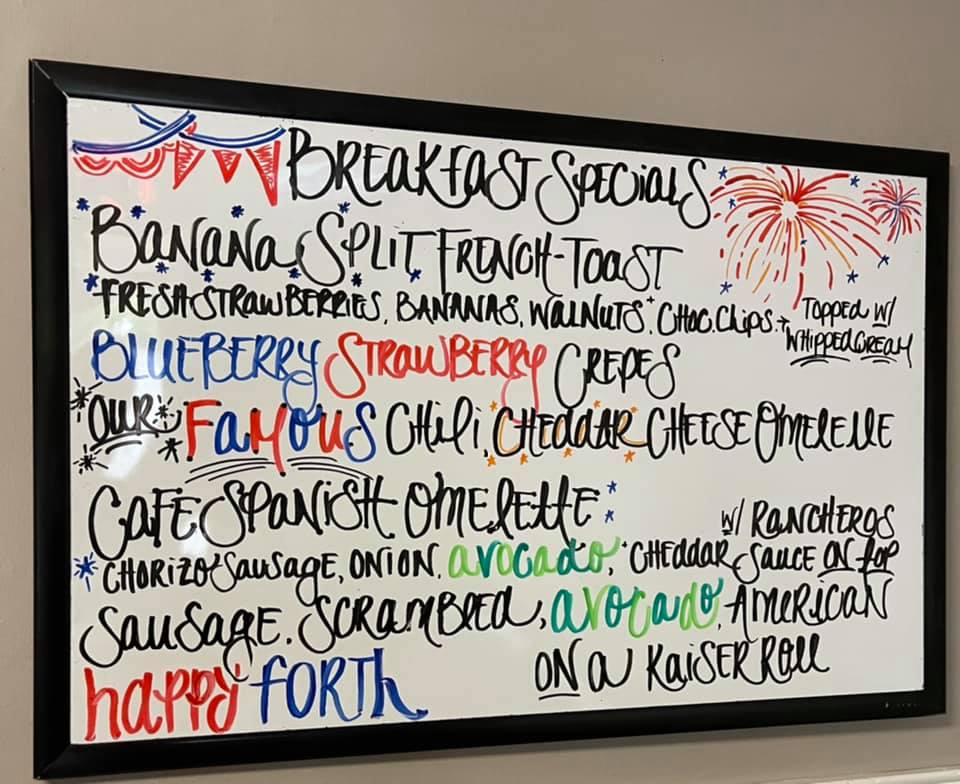 BREAKFAST SPECIALS
BANANA SPLIT FRENCH-TOAST
FRESH STRAWBERRIES, BANANAS, WALNUTS + CHOC. CHIPS + TOPPED W/ WHIPPED CREAM
BLUEBERRY STRAWBERRY CREPES
OUR FAMOUS CHILI, CHEDDAR CHEESE OMELETTE
CAFE SPANISH OMELETTE
CHORIZO SAUSAGE, ONION, AVOCADO, + CHEDDAR W/ RANCHEROS SAUCE ON TOP
SAUSAGE, SCRAMBLED, AVOCADO, AMERICAN
ON A KAISER ROLL
HAPPY FORTH